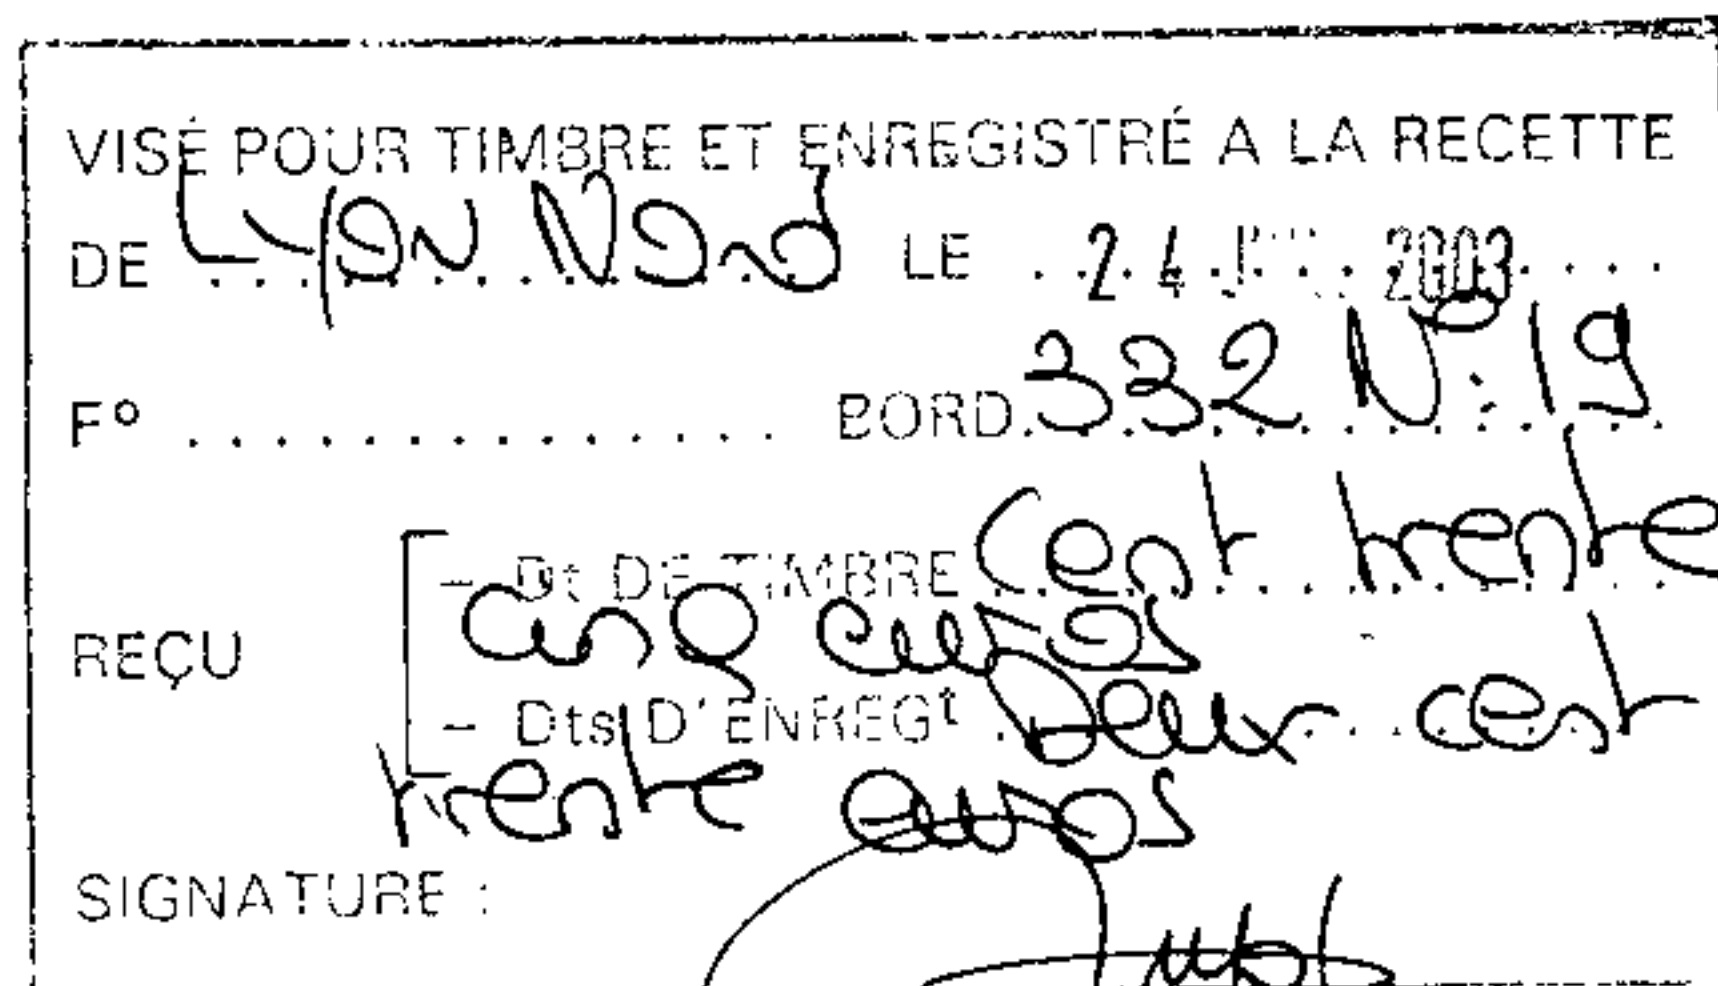 VISÉ POUR TIMBRE ET ENREGISTRÉ A LA RECETTE
DE Lyon Nord LE 24 2003
F° BORD. 332 N°: 19
- Dt DE TIMBRE Cent trente
cinq euros
REÇU
- Dts D'ENREGt Deux cent
trente euros
SIGNATURE :